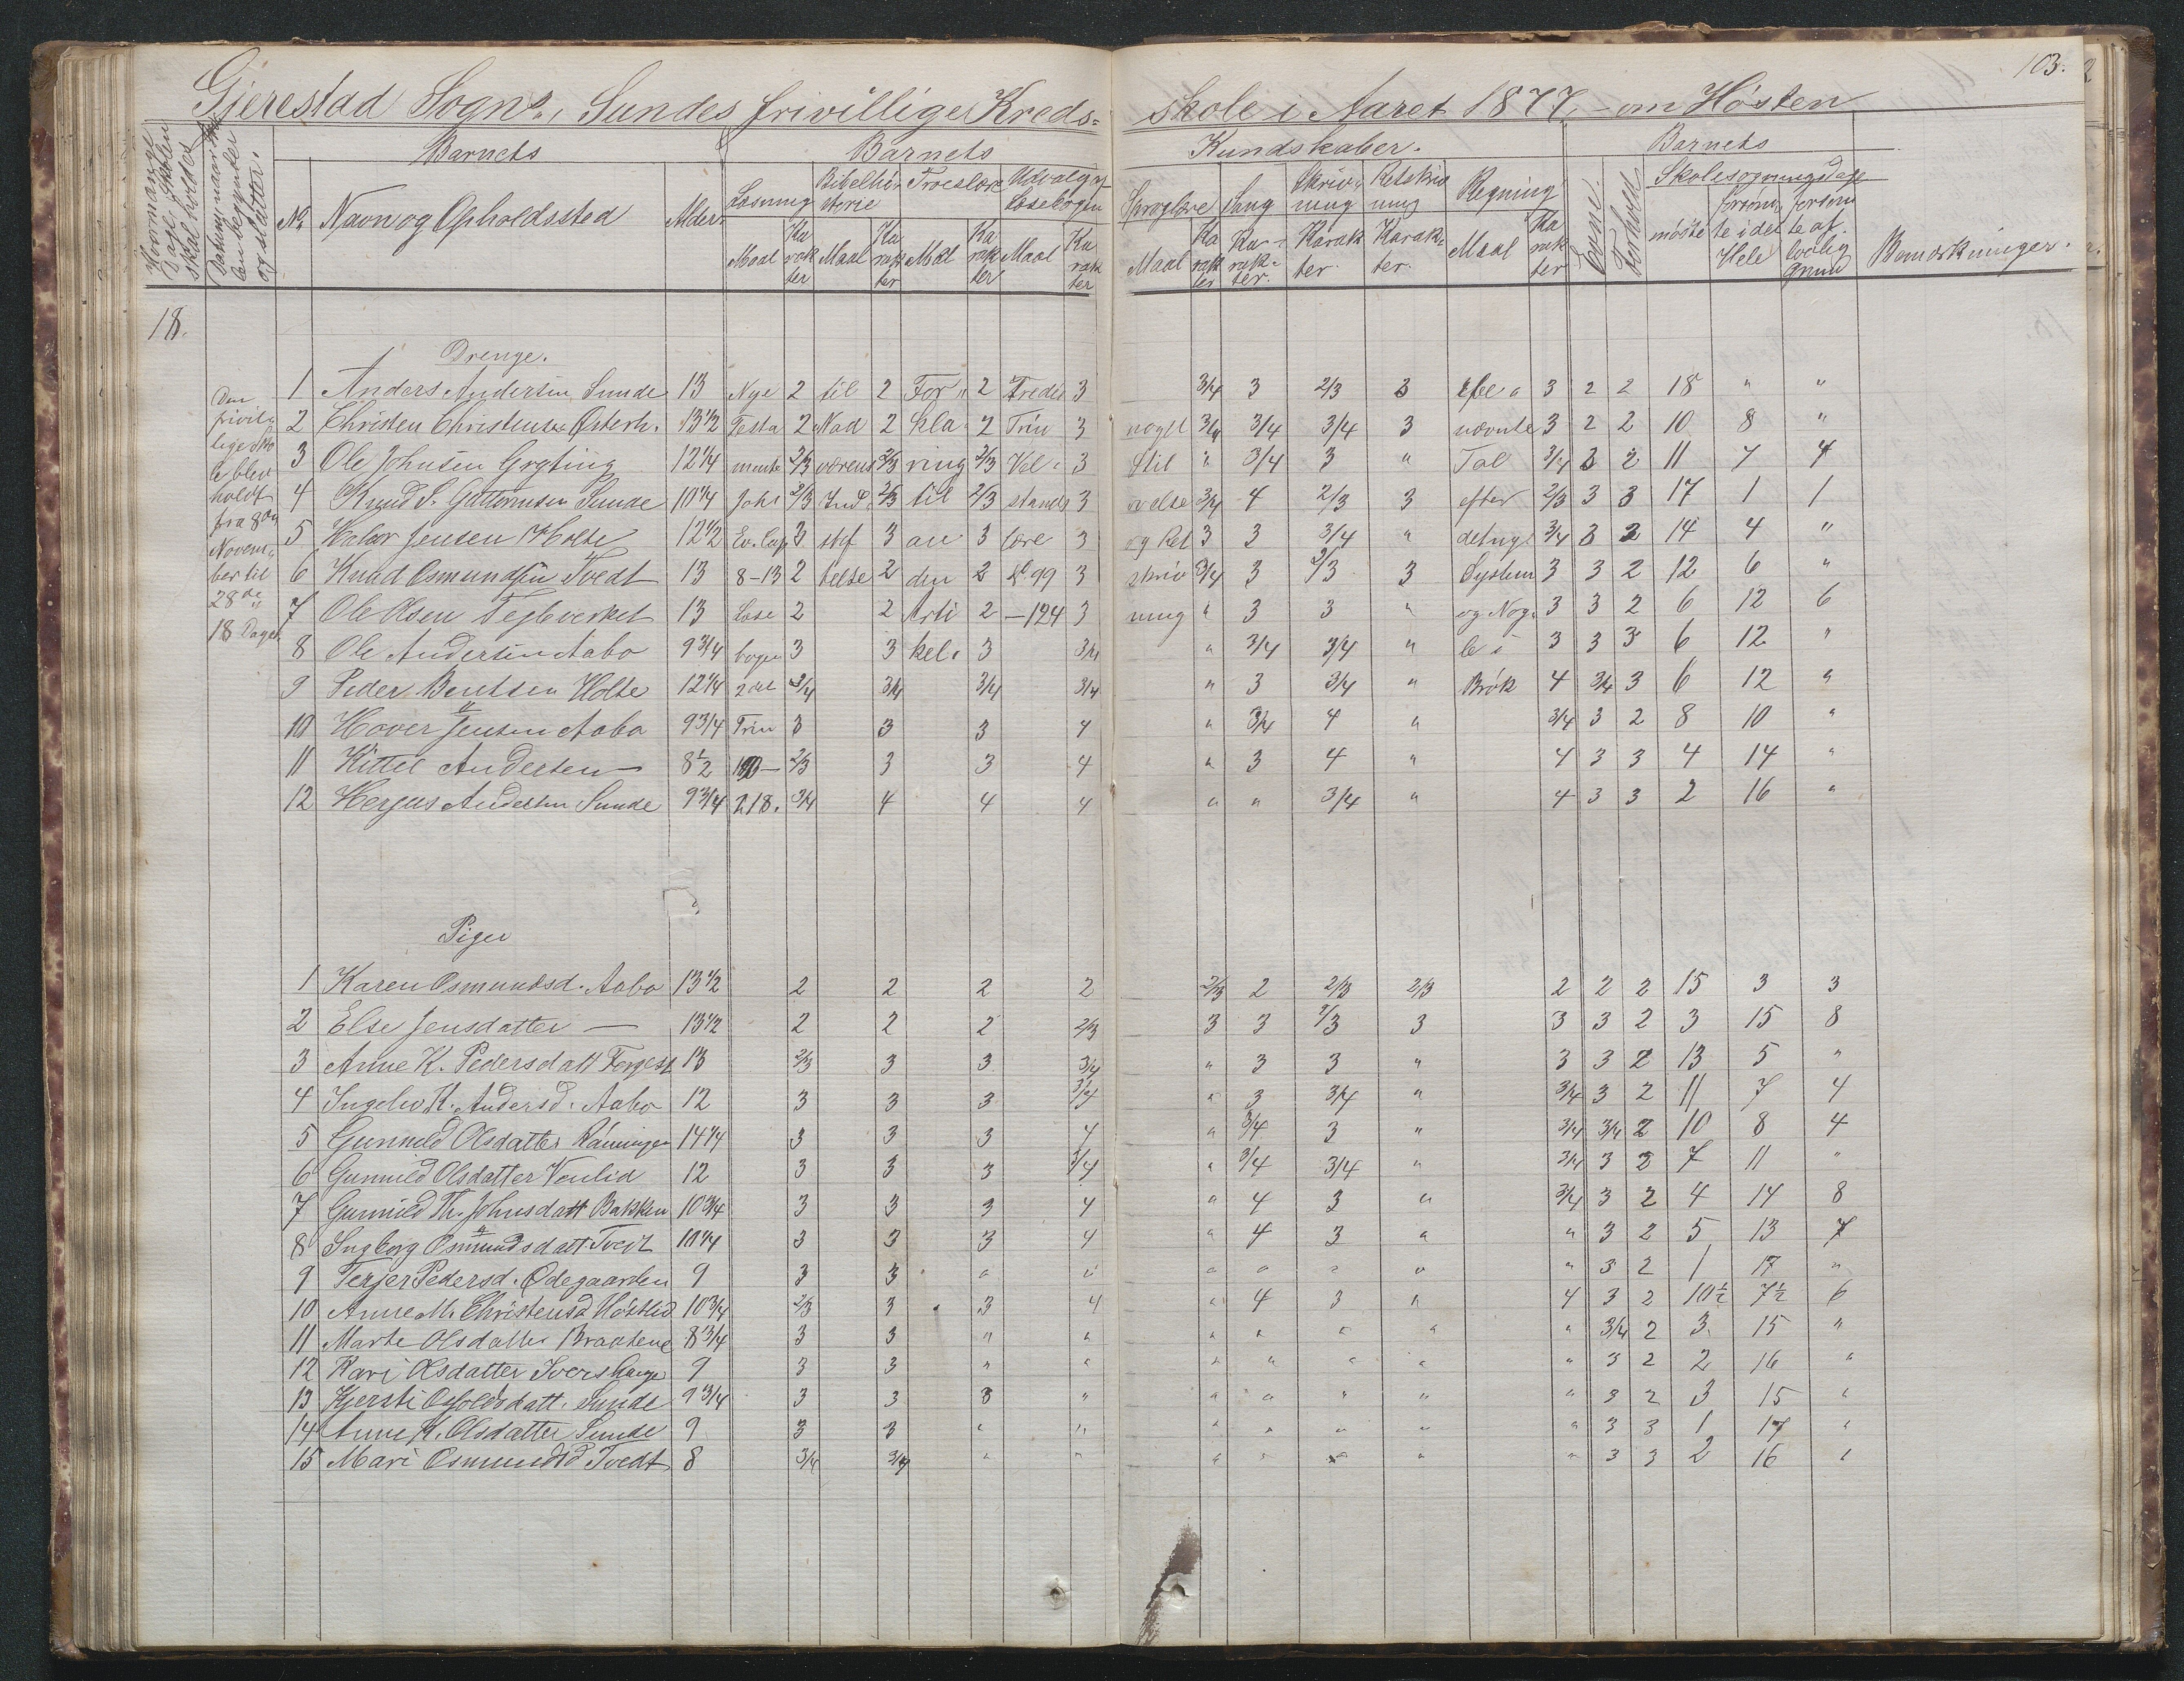 103.
Gjerestad Sogns, Sundes frivillige Kreds= skole i Aaret 1877, - om Høsten
Hvormange Dage Skolen skal holdes
Datum, naar Skolen begynder og slutter.
Barnets Barnets Kundskaber. Barnets
No Navn og Opholdssted Alder Læsning Bibelhistorie Troeslære Udvalg af Læsebogen Sproglære Sang Skrivning Retskrivning Regning Evne. Forhold Skolesøgningsdage Bemærkninger.
Maal Karakter Maal Karakter Maal Karakter Maal Karakter Maal Karakter Karakter. Karakter. Karakter. Maal Karakter mødte forsømte i det Hele forsømte af lovlig Grund
18.
Den frivillige Skole blev holdt fra 8de November til 28de 18 Dage
Drenge.
1 Anders Andersen Sunde 13 Nye 2 til 2 For 2 Tredie 3 3/4 3 2/3 3 3 2 2 18 " "
2 Christen Christensen Østerh. 13 1/2 Testa 2 Nad 2 kla 2 Trin 3 noget 3/4 3/4 3/4 3 nævnte 3 2 2 10 8 "
3 Ole Johnsen Grytting 12 1/4 mente 2/3 værens 2/3 ring 2/3 Vel 3 Stil " 3/4 3 " Tal 3/4 3 2 11 7 4
4 Knud S. Guttormsen Sunde 10 1/4 Joh. 2/3 Ind 2/3 til 2/3 stands 3 øvelse 3/4 4 2/3 3 efter 2/3 3 3 17 1 1
5 Halvor Jensen Holte 12 1/2 Ev. Cap. 3 stif 3 an 3 lære 3 og Ret 3 3 3/4 " det nye 3/4 3 2 14 4 "
6 Knud Osmundsen Tvedt 13 8-13 2 telse 2 den 2 99 3 skriv 3/4 3 2/3 3 System 3 3 2 12 6 "
7 Ole Olsen Teglverket 13 Læse 2 2 Arti 2 -124 3 ning " 3 3 " og Nog 3 3 2 6 12 6
8 Ole Andersen Aabo 9 3/4 bogen 3 3 kel. 3 3/4 " 3/4 3/4 " le i 3 3 3 6 12 "
9 Peder Bentsen Holte 12 1/4 2det 3/4 3/4 3/4 3/4 " 3 3/4 " Brøk 4 3/4 3 6 12 "
10 Hover Jensen Aabo 9 3/4 Trin 3 3 3 4 " 3/4 4 " 3/4 3 2 8 10 "
11 Kittel Andersen — 8 1/2 2/3 3 3 4 " 3 4 " 4 3 3 4 14 "
12 Hergus Andersen Sunde 9 3/4 218. 3/4 4 4 4 " " 3/4 " 4 3 3 2 16 "
Piger
1 Karen Osmundsd. Aabo 13 1/2 2 2 2 2 2/3 2 2/3 2/3 2 2 2 15 3 3
2 Else Jensdatter — 13 1/2 2 2 2 2/3 3 3 2/3 3 3 3 2 3 15 8
3 Anne K. Pedersdatt 13 2/3 3 3 3/4 " 3 3 " 3 3 2 13 5 "
4 Ingebor K. Andersd. Aabo 12 3 3 3 3/4 " 3 3/4 " 3/4 3 2 11 7 4
5 Gunnild Olsdatter Rønningen 14 1/4 3 3 3 4 " 3/4 3 " 3/4 3/4 2 10 8 4
6 Gunnild Olsdatter 12 3 3 3 3/4 " 3/4 3/4 " 3/4 3 2 7 11 "
7 Gunnild Th. Johnsdatt Bakken 10 3/4 3 3 3 4 " 4 3 " 3/4 3 2 4 14 8
8 Ingborg Osmundsdatt. Tvedt 10 1/4 3 3 3 4 " 4 3 " " 3 2 5 13 7
9 Terjer Pedersd. Ødegaarden 9 3 3 " " " " " " " 3 2 1 17 "
10 Anne M. Christensd. 10 3/4 2/3 3 3 4 " 4 3 " 4 3 2 10 1/2 7 1/2 6
11 Marte Olsdatter Braatene 8 3/4 3 3 " " " " " " " 3/4 2 3 15 "
12 Kari Olsdatter 9 3 3 " " " " " " " 3 2 2 16 "
13 Kjersti Osfoldsdatt. Sunde 9 3/4 3 3 3 " " " " " " 3 2 3 15 "
14 Anne K. Olsdatter Sunde 9 3 3 " " " " " " " 3 3 1 17 "
15 Mari Osmundsd Tvedt 8 3/4 3/4 " " " " " " " 3 3 2 16 "